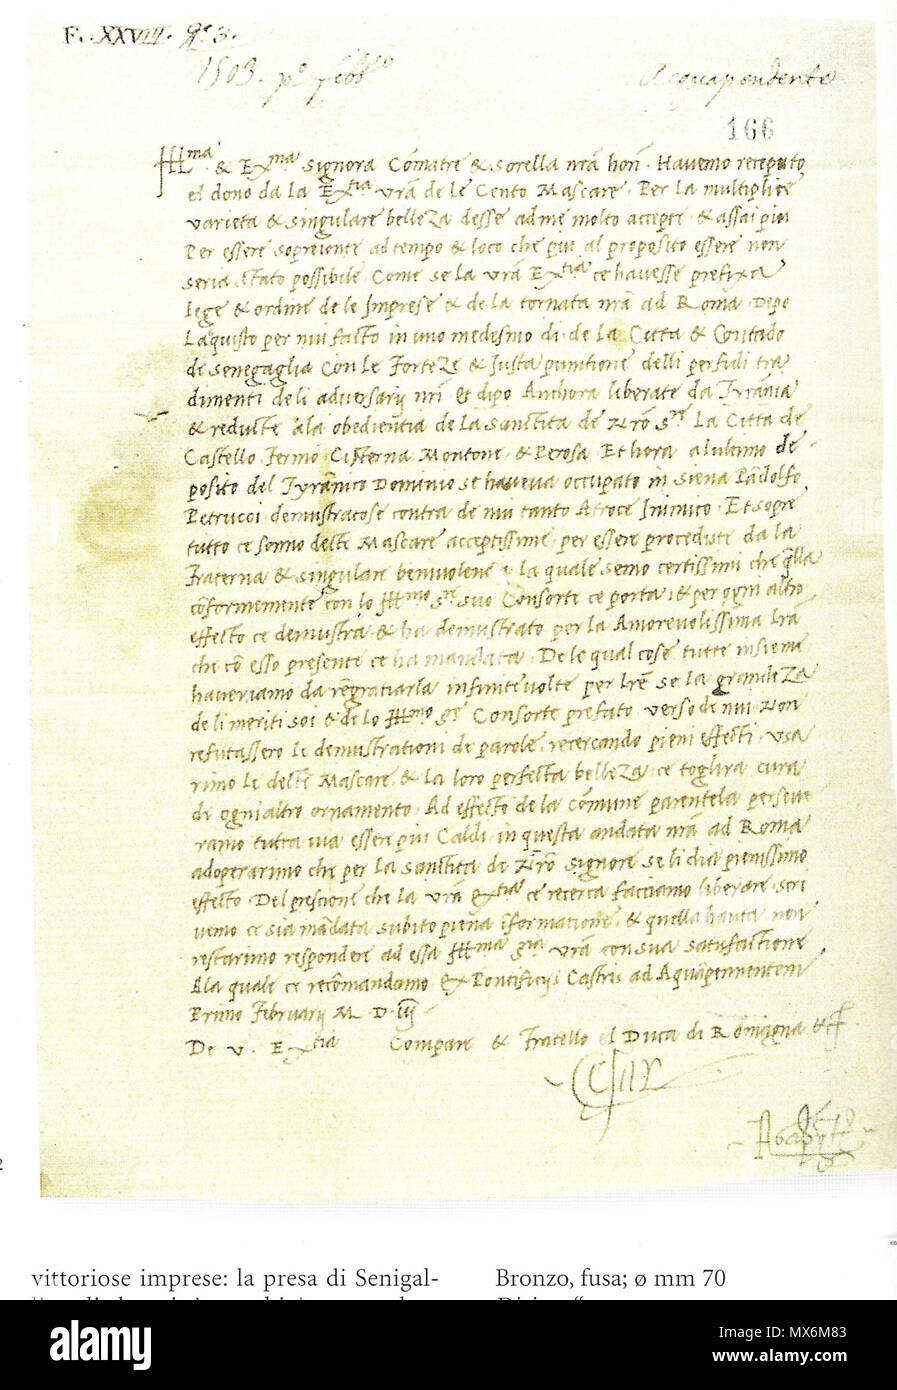 F. XXVIII. 9.e 3.
1503. p.o febb.o
Acquapendente
166
Ill.ma & Ex.ma Signora Cõmatre & Sorella nrã hon. Havemo receputo
el dono da la Ex.tia vrã de le Cento Mascare. Per la multiplice
varieta & singulare belleza desse ad me molto accepte. & assai piu
Per essere sopreionte ad tempo & loco che piu al proposito essere non
seria stato possibile. Come se la vrã Ex.tia ce havesse prefixa
lege & ordine de le Imprese & de la tornata nrã ad Roma. Depo
Laquisto per nui facto in uno medesmo di de la Citta & Contado
de Senegaglia con le Forteze & Justa punitione delli perfidi tra
dimenti deli adversarij nrĩ Et dipo Anchora liberate da Tyrãnia
& reducte à la obedientia de la Sanctita de Nrõ S.re La Citta de
Castello Fermo Cisterna Montone & Perosa Et hora al ultimo de
posito del Tyrãnico Dominio se haveva occupato in Siena Pãdolfo
Petrucci demustratose contra de nui tanto Atroce Inimico. Et sopre
tutto ce sonno dette Mascare acceptissime per essere procediste da la
Fraterna & singulare benivolene la quale semo certissimi che q̃lla
cõformemente con lo Ill.mo S.re suo Consorte ce porta. & per ogni altro
effecto ce demustra & ha demustrato per la Amorevolissima lrã
che cõ esso presente ce ha mandata. De le qual cose tutte insieme
haveriamo da rẽgratiarla infinite volte per lrẽ se la grandeza
de li meriti soi & de lo Ill.mo S.re Consorte prefato verso de nui Non
refutassero le demustrationi de parole. recercando pieni effecti. Usa
rimo le dette Mascare & la loro perfecta belleza ce toglira cura
de ogni altro ornamento. Ad effecto de la cõmune parentela perseve
ramo tutta via essere piu Caldi. in questa andata nrã ad Roma
adoperarimo che per la Sanctita de Nrõ Signore se li dia pienissimo
effecto. Del prescione che la vrã ex.tia ce recerca facciamo liberare. scri
vemo ce sia mãdata subito piena iformatione. & quella hauta non
restarimo respondere ad essa Ill.ma S.ria vrã con sua satisfactione
Ala quale ce recõmandamo. Ex Pontificijs Castris ad Aquãpennentem
Primo Februarij M. D. iij
De v. Ex.tia Compare & Fratello el Duca di Romagna &c
Cesar
Agapytus
vittoriose imprese: la presa di Senigal-
Bronzo, fusa; ø mm 70
alamy
Image ID: MX6M83
www.alamy.com